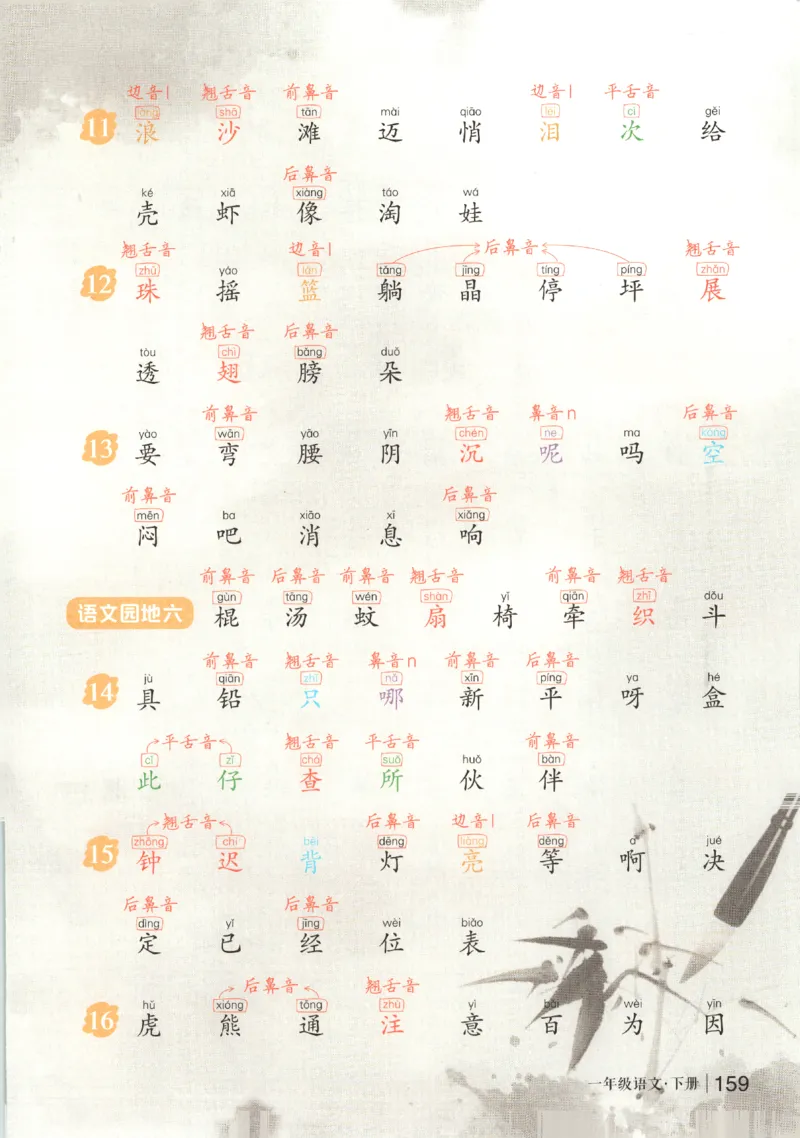 边音l 翘舌音 前鼻音 边音l 平舌音
làng shā tān mài qiāo lèi cì gěi
11 浪 沙 滩 迈 悄 泪 次 给
后鼻音
ké xiā xiàng táo wá
壳 虾 像 淘 娃
翘舌音 边音l 后鼻音 翘舌音
zhū yáo lán tǎng jīng tíng píng zhǎn
12 珠 摇 篮 躺 晶 停 坪 展
翘舌音 后鼻音
tòu chì bǎng duǒ
透 翅 膀 朵
前鼻音 翘舌音 鼻音n 后鼻音
yào wān yāo yīn chén ne ma kòng
13 要 弯 腰 阴 沉 呢 吗 空
前鼻音 后鼻音
mēn ba xiāo xī xiǎng
闷 吧 消 息 响
前鼻音 后鼻音 前鼻音 翘舌音 前鼻音 翘舌音
gùn tāng wén shàn yǐ qiān zhī dǒu
语文园地六 棍 汤 蚊 扇 椅 牵 织 斗
前鼻音 翘舌音 鼻音n 前鼻音 后鼻音
jù qiān zhǐ nǎ xīn píng ya hé
14 具 铅 只 哪 新 平 呀 盒
平舌音 翘舌音 平舌音 前鼻音
cǐ zǐ chá suǒ huǒ bàn
此 仔 查 所 伙 伴
翘舌音 后鼻音 边音l 后鼻音
zhōng chí bēi dēng liàng děng a jué
15 钟 迟 背 灯 亮 等 啊 决
后鼻音 后鼻音
dìng yǐ jīng wèi biǎo
定 已 经 位 表
后鼻音 翘舌音
hǔ xióng tōng zhù yì bǎi wèi yīn
16 虎 熊 通 注 意 百 为 因
一年级语文·下册 159